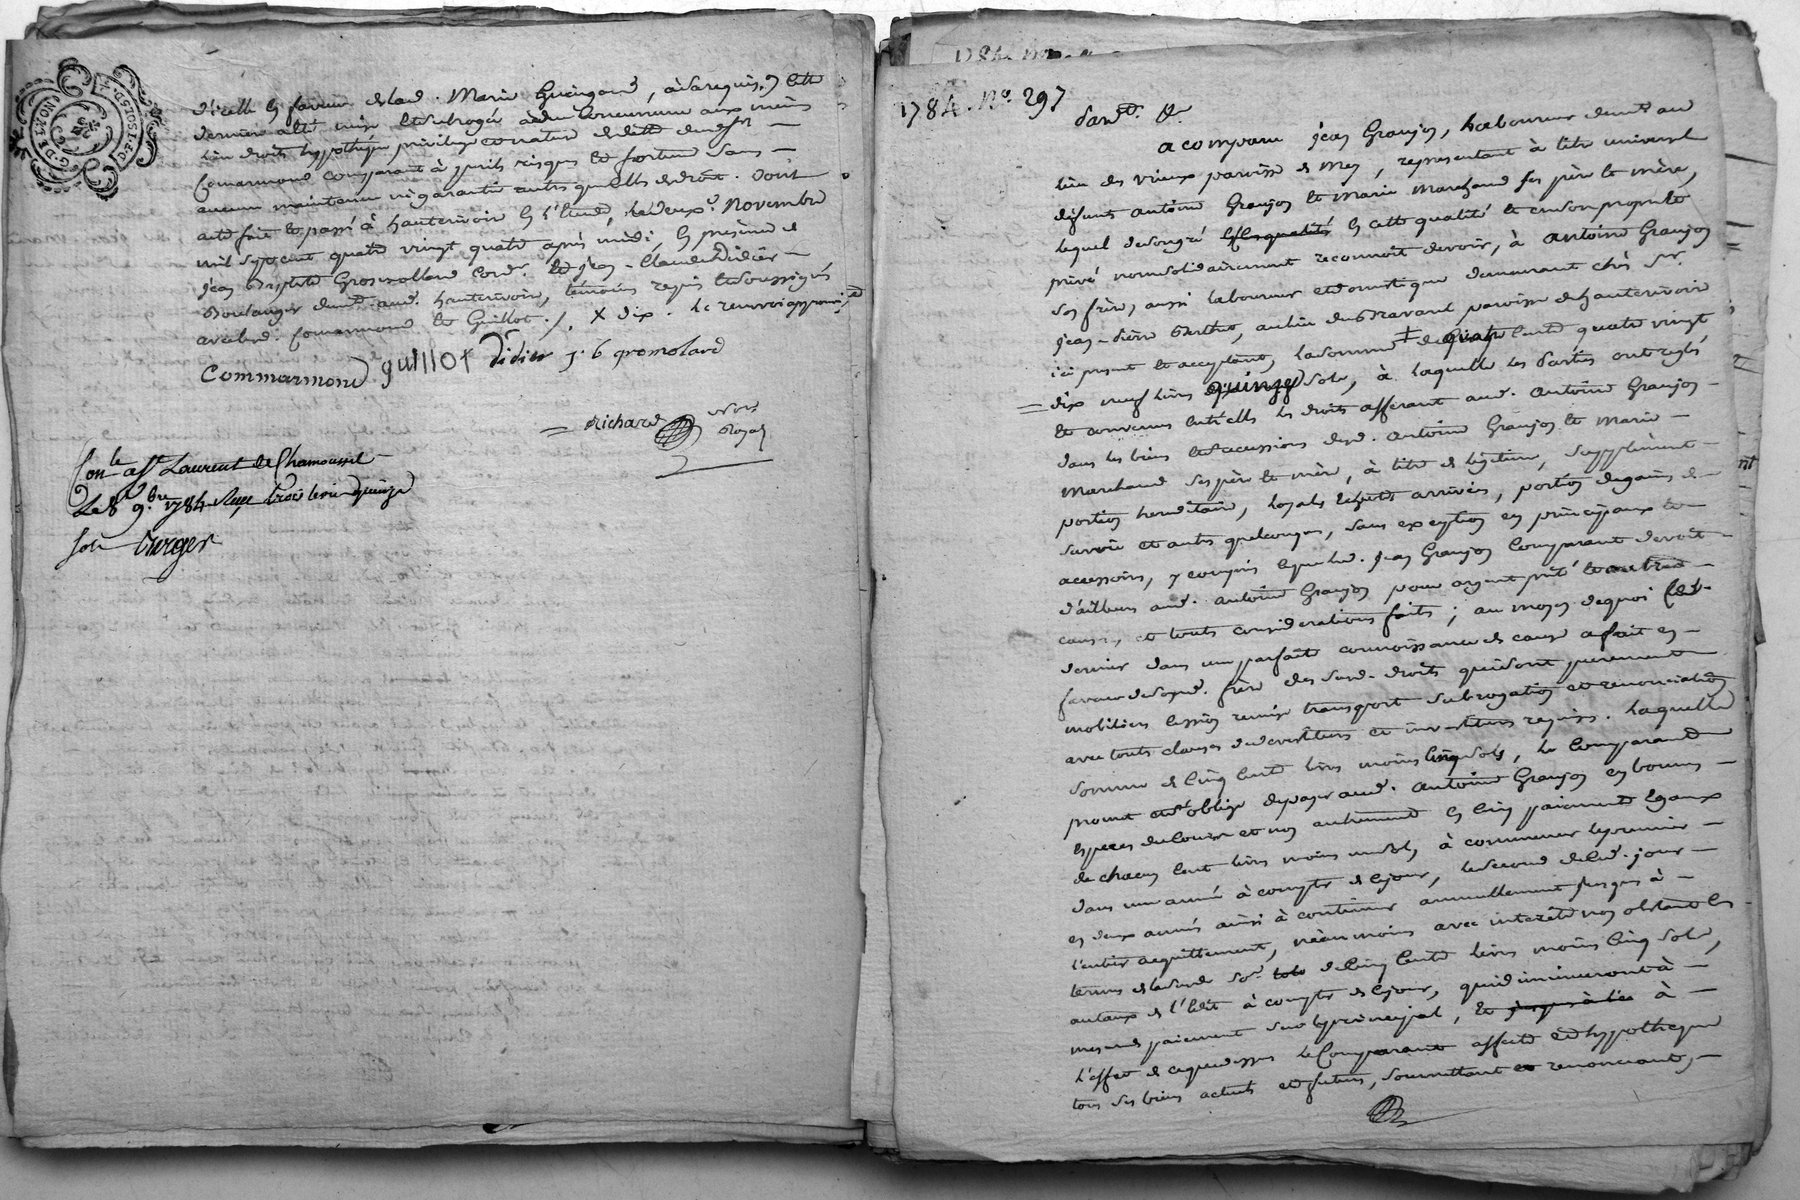 G. DE LYON
2 SOLS 8 D.
d'icelle en faveur de lad. Marie Guengand, à ce requis, cette
derniere alté mise et subrogée à due concurrence aux mêmes
lieu droits hypotheque privilege et nature de dette dud. sr
Comarmond comparant à perils risques et fortune sans
aucun maintenue ni garantie autres que celles de droit. Dont
acte fait et passé à hauterivoir en l'étude, le deux. Novembre
mil sept cent quatre vingt quatre après midi, en présence de
jean Baptiste Grosmollard Cord.r et jean-Claude Didier
Boulanger demt. aud. hauterivoir, témoins requis et soussignés
avec led. Comarmond et Guillot ./. X dix. le renvoi approuvé
Commarmond guillot Didier j. b gromolard
Richard Not.re Royal
Con.lé a St Laurent de Chamousset
Le 8 9.bre 1784 Reçu trois livres quinze
sols Berger
1784. N.o 297
Pard.t &.
a comparu jean Granjon, Laboureur demt. au
lieu des vieux paroisse de Mey, representant à titre universel
défunts antoine Granjon et Marie Marchand ses père et mère,
lequel de son gré esdites qualités en cette qualité et en son propre et
privé nom solidairement reconnoit devoir, à antoine Granjon
son frère, aussi laboureur et domestique demeurant chés Sr.
jean-pierre Barthet, au lieu du Bravant paroisse de hauterivoir
ici present et acceptant, la somme de quatre cents quatre vingt
dix neuf livres quinze sols, à laquelle les parties ont reglé
et convenu entr'elles les droits afferant aud. antoine Granjon
dans les biens et successions desd. antoine Granjon et Marie
Marchand ses père et mère, à titre de légitime, supplément
portion hereditaire, loyals echutes arrivées, portion de gains de
survie et autres quelconques, sans exception en principaux et
accessoires, y compris ce que led. jean Granjon Comparant devoit
d'ailleurs aud. antoine Granjon pour argent prêté et autres
causes, et toutes considerations faites; au moyen de quoi ced.
dernier dans une parfaite connoissance de cause a fait en
faveur de sond. frère desd. droits qui sont purement
mobiliers cession remise transport subrogation et renonciation
avec toutes clauses de devestiture et investiture requises. laquelle
somme de cinq cents livres moins cinq sols, le comparant
promet et s'oblige de payer aud. antoine Granjon en bonnes
especes de cours et non autrement en cinq paiements egaux
de chacun cent livres moins un sol, à commencer le premier
dans une année à compter de ce jour, le second dud. jour
en deux années ainsi à continuer annuellement jusques à
l'entier acquittement, néanmoins avec interêts non obstant les
termes de lad. somme de cinq cents livres moins cinq sols,
au taux de l'édit à compter de ce jour, qui diminueront à
mesure paiement sur le principal, et jusqu'à ce à
l'effet de ce que dessus le Comparant affecte et hypotheque
tous ses biens actuels et futurs, soumettant et renonciant,